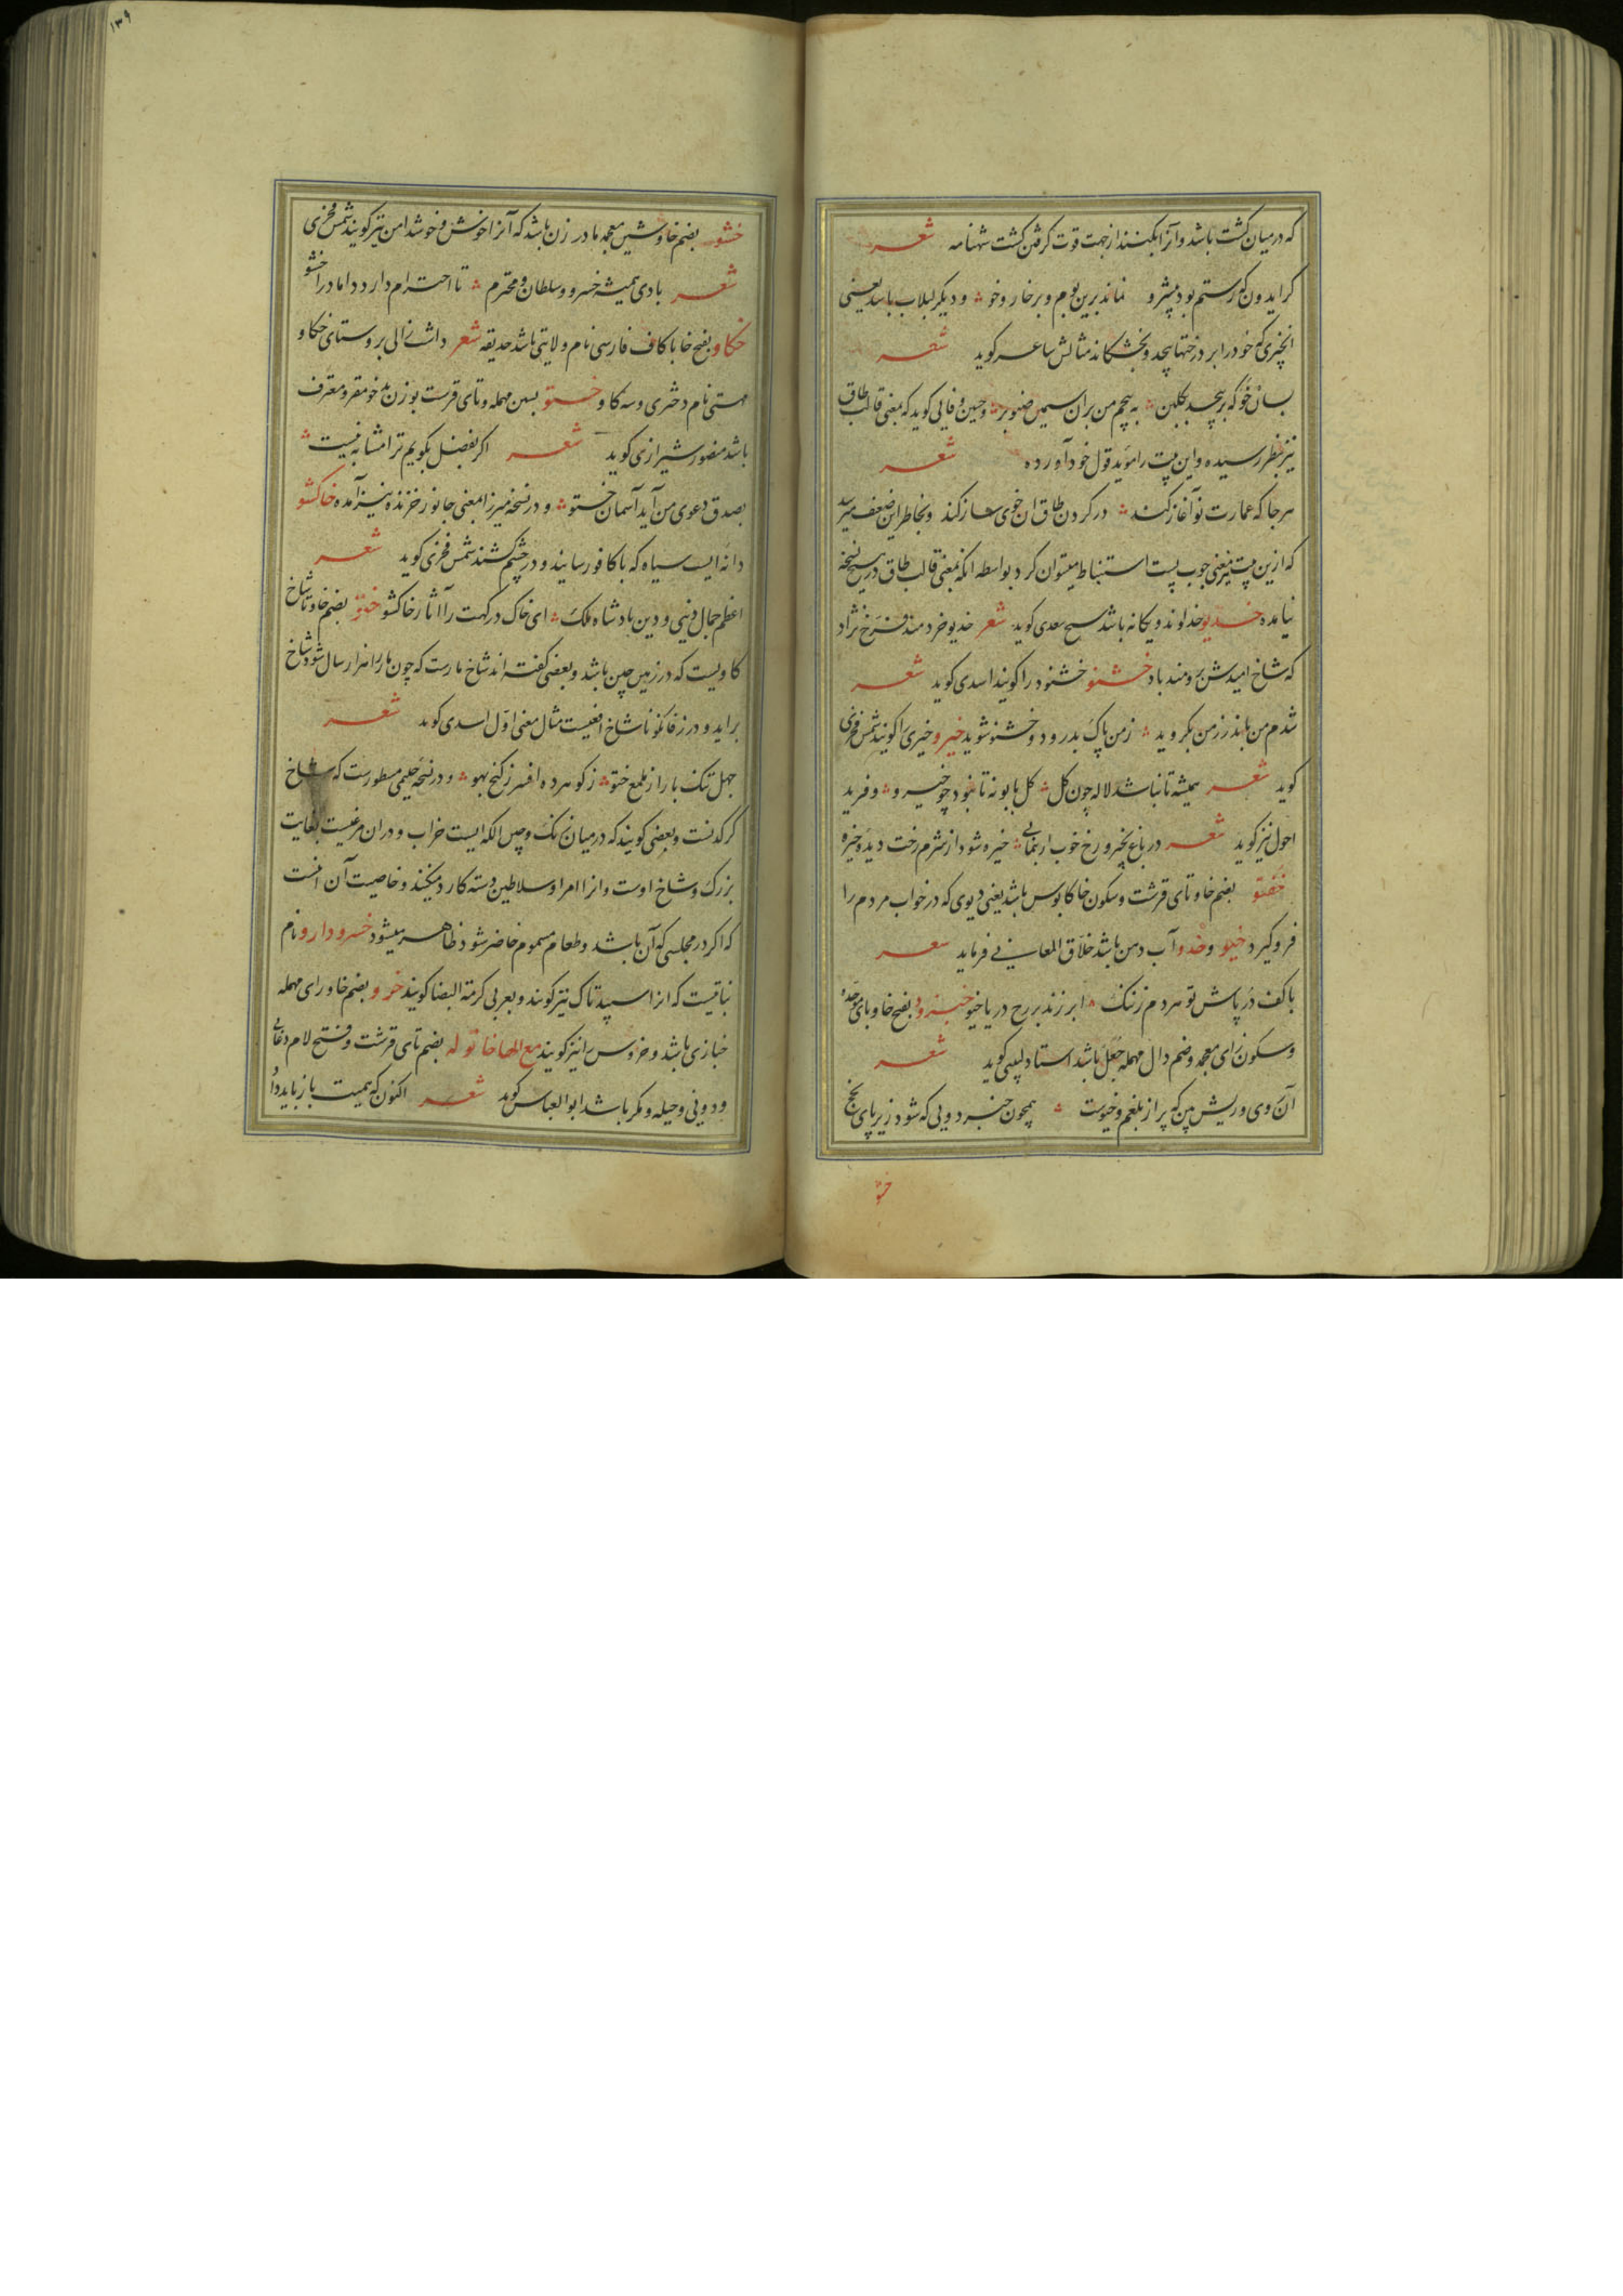 که در میان کشت باشد و آنرا بکنند از جهت قوت گرفتن کشت شهنامه شعر
گر ایدون که رستم بود پیشرو نماند برین بوم و بر خار و خو و دیگر لبلاب باشد یعنی
انچیزی که خود را بر درختها پیچد و بخشکاند مثالش شاعر گوید شعر
بسان خو که بر پیچد بگلبن به پیچم من بران سیمین صنوبر و حسین وفایی گوید که بمعنی قالب طاق
نیز بنظر رسیده و این بیت را موید قول خود آورده شعر
هرجا که عمارت نو آغاز کند در کردن طاق ان خوی ساز کند و بخاطر این ضعیف میرسد
که ازین بیت نیز معنی چوب بست استنباط میتوان کرد بواسطه انکه بمعنی قالب طاق در هیچ نسخه
نیامده خدیو خداوند و یکانه باشد شیخ سعدی گوید شعر خدیو خردمند فرخ نژاد
که شاخ امیدش برومند باد خشنو خشنود را گویند اسدی گوید شعر
شدم من بدرز من بگروید ز من پاک بدرود و خشنو شوید خیرو خیری را گویند شمس فخری
گوید شعر همیشه تا نباشد لاله چون گل گل بابونه تا نبود چو خیرو و فرید
احول نیز گوید شعر در باغ بخیرو رخ خوب ار بنمایی خیره شود از شرم رخت دیده خیره
خفتو بضم خا و تای قرشت و سکون خا کابوس باشد یعنی دیوی که در خواب مردم را
فروگیرد خیو و خدو آب دهن باشد خلاق المعانی فرماید شعر
با کف در پاش تو هر دم ز ننگ ابر زند بر رخ دریا خیو خبزدو بفتح خا و بای موحده
و سکون زای معجمه و ضم دال مهمله جعل باشد استاد لبیبی گوید شعر
آن روی و ریش بین که پر از بلغم و خیوست همچون خبزدویی که شود زیر پای پخج
خشو
۱۳۹
خشو بضم خا و شین معجمه مادر زن باشد که آنرا خوش و خوشدامن نیز گویند شمس فخری
شعر بادی همیشه خسرو و سلطان و محترم تا احترام دارد داماد را خشو
خکاو بفتح خا با کاف فارسی نام ولایتی باشد حدیقه شعر داشت زالی بروستای خکاو
مهستی نام دختری و سه گاو خستو بسین مهمله و تای قرشت بوزن بدخو مقر و معترف
باشد منصور شیرازی گوید شعر اگر بفضل بگویم ترا مشابه نیست
بصدق دعوی من آید آسمان خستو و در نسخه میرزا بمعنی جانور خزنده نیز آمده خاکشو
دانه ایست سیاه که با کافور سایند و در چشم کشند شمس فخری گوید شعر
اعظم جمال دنیی و دین پادشاه ملک ای خاک درگهت را آثار خاکشو ختو بضم خا و تا شاخ
گاویست که در زمین چین باشد و بعضی گفته اند شاخ مارست که چون مار را هزار سال شود شاخ
براید و در زفانگویا شاخ افعیست مثال معنی اول اسدی گوید شعر
چهل تنگ بار از ملمع ختو ز گوهر ده افسر ز گنج بهو و در نسخه حلیمی مسطورست که شاخ
کرگدنست و بعضی گویند که در میان زنگ و چین الکه ایست خراب و دران مرغیست بغایت
بزرک و شاخ اوست و انرا امرا و سلاطین دسته کارد میکنند و خاصیت آن انست
که اگر در مجلسی که آن باشد و طعام مسموم حاضر شود ظاهر میشود خسرودارو نام
نباتیست که انرا سپید تاک نیز گویند و بعربی کرمة البیضا گویند خرو بضم خا و رای مهمله
خبازی باشد و خروس را نیز گویند مع الها خاتوله بضم تای قرشت و فتح لام دغایی
و دونی و حیله و مکر باشد ابوالعباس گوید شعر اکنون که همیت باز باید داد